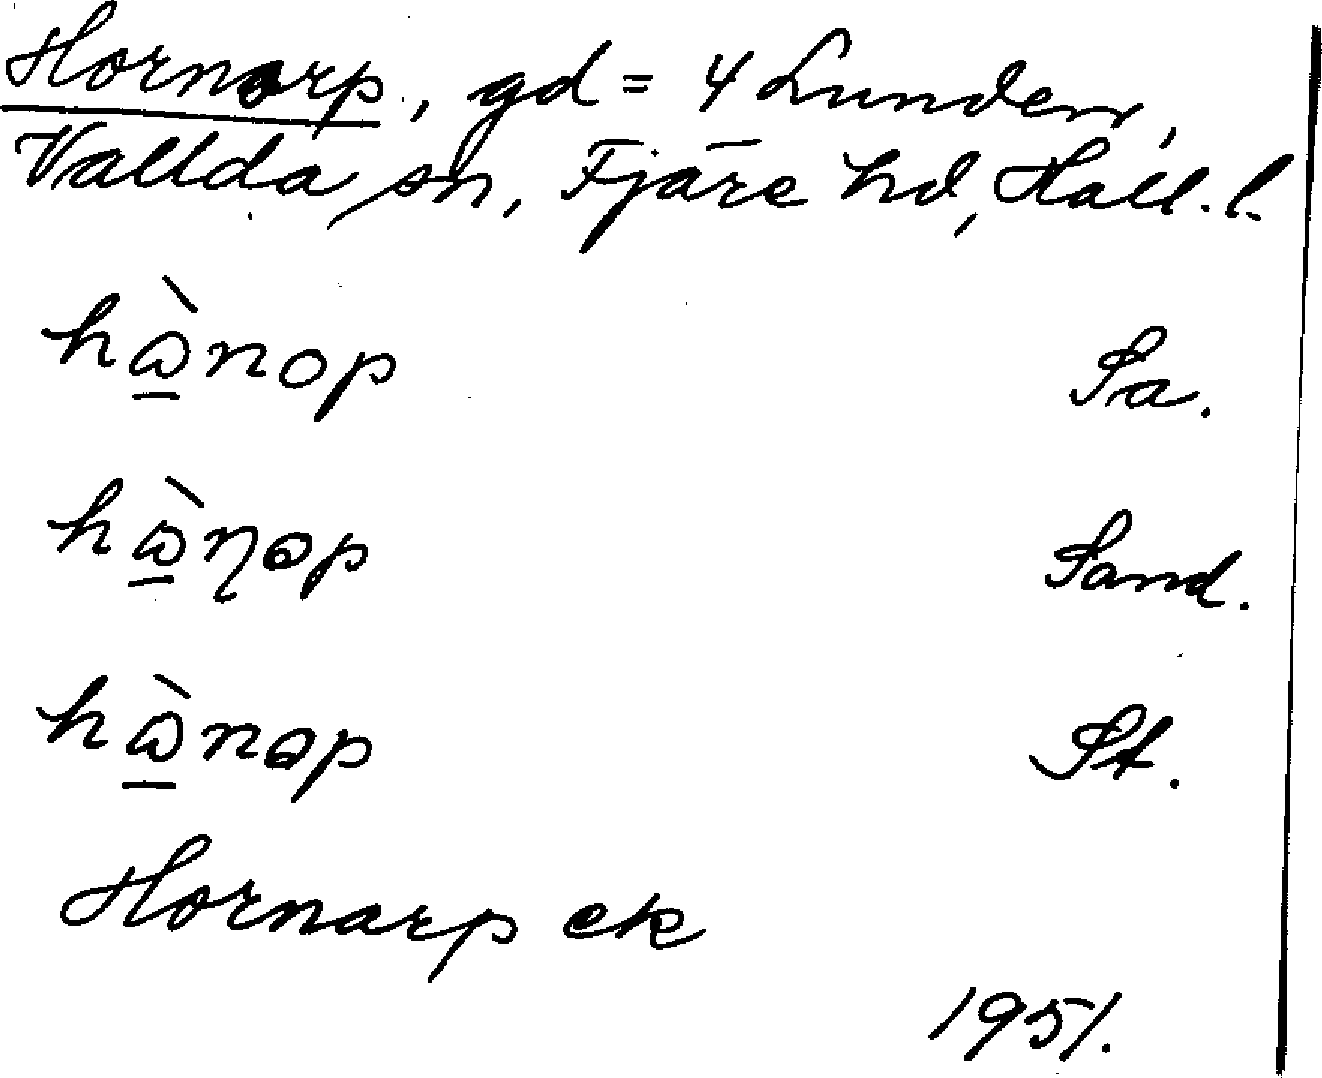 Hornarp, gd = 4 Lunden,
Vallda sn, Fjäre hd, Hall. l.
hὼ̱nop Sa.
hὼ̱ɳəp Sand.
hὼ̱nəp St.
Hornarp ek
1951.